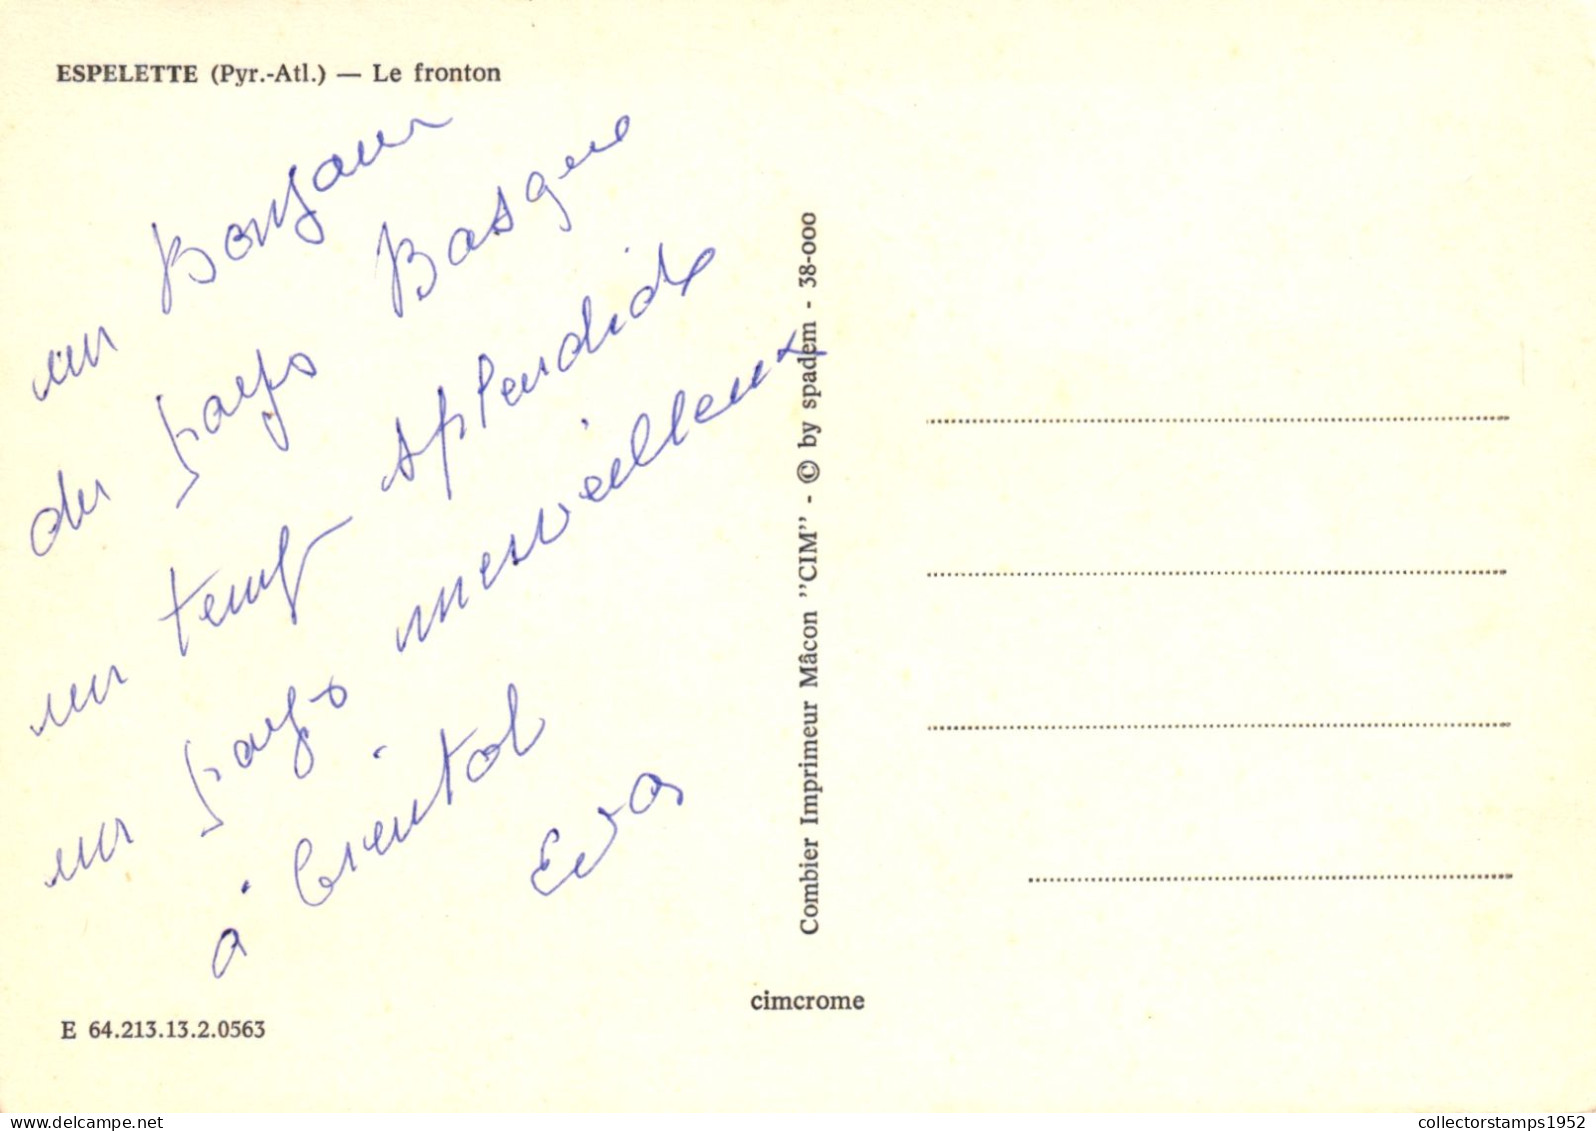 ESPELETTE (Pyr.-Atl.) — Le fronton
un Bonjour
du pays Basque
un temps splendide
un pays merveilleux
à bientôt
Eva
E 64.213.13.2.0563
Combier Imprimeur Mâcon "CIM" - © by spadem - 38-000
cimcrome
collectorstamps1952